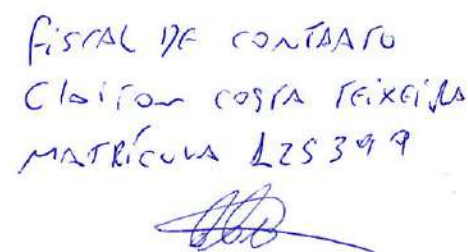 FISCAL DE CONTRATO
Cloiton COSTA TEIXEIRA
MATRÍCULA 125399